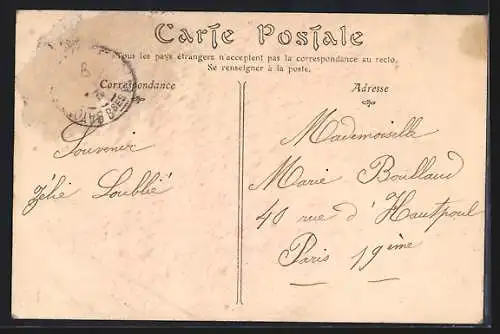 Carte Postale
Tous les pays étrangers n'acceptent pas la correspondance au recto.
Se renseigner à la poste.
Correspondance
Adresse
Souvenir
Zélie Loublié
Mademoiselle
Marie Bouillaud
40 rue d'Hautpoul
Paris 19ème